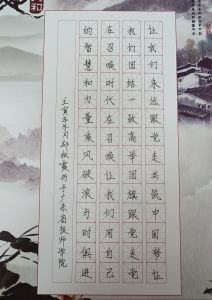 让我们永远跟党走共筑中国梦让
我们团结一致高举团旗跟党走党
在召唤时代在召唤让我们用自己
的智慧和力量乘风破浪与时俱进
壬寅年冬月郑霞书于广东省技师学院
和